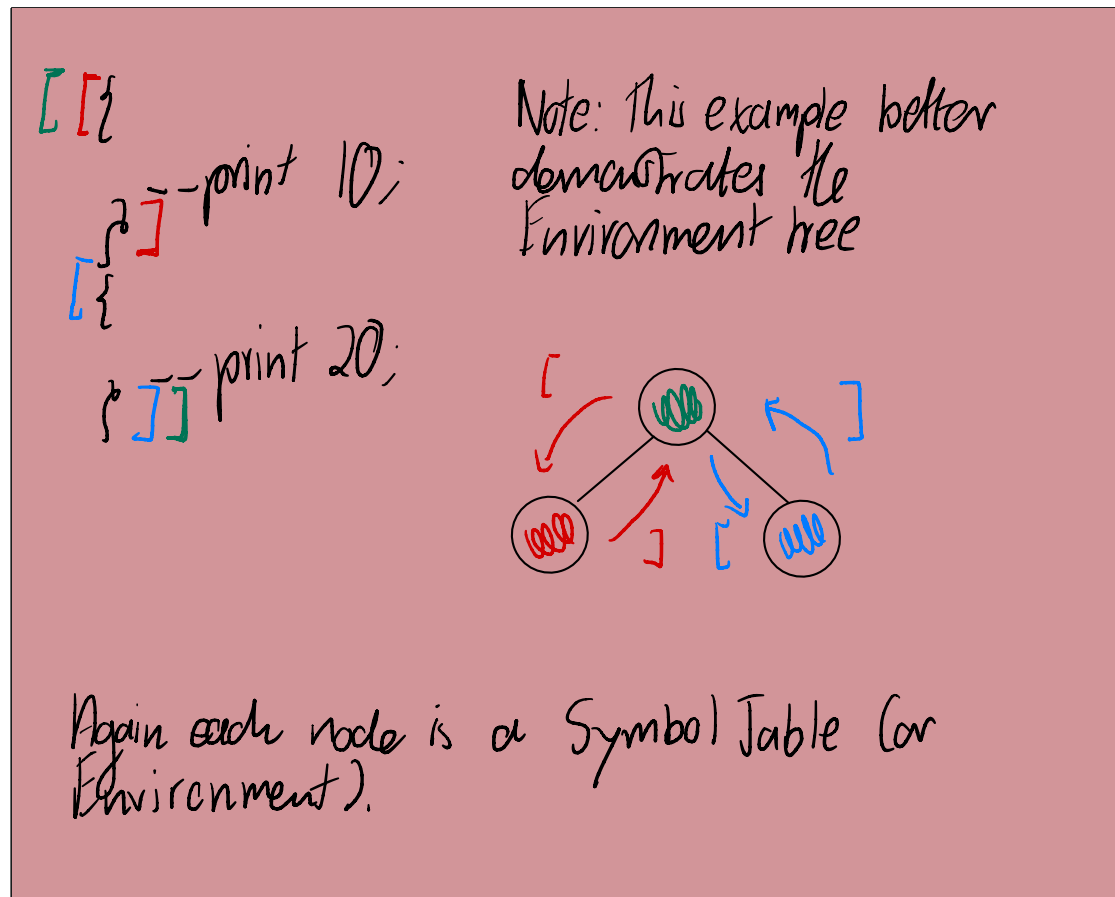 [ [ {
print 10;
} ]
[ {
print 20;
} ] ]
Note: This example better
demonstrates the
Environment tree
[
]
]
[
Again each node is a Symbol Table (or
Environment).